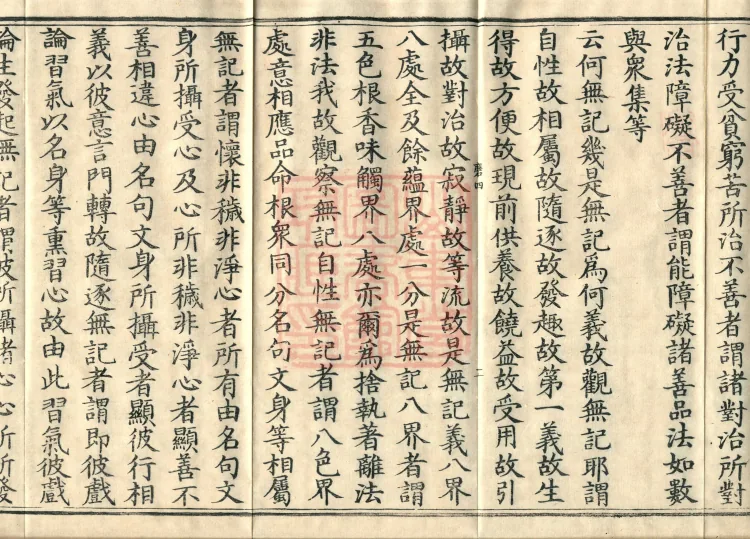 行力受貧窮苦所治不善者謂諸對治所對
治法障礙不善者謂能障礙諸善品法如數
與眾集等
云何無記幾是無記為何義故觀無記耶謂
自性故相屬故隨逐故發趣故第一義故生
得故方便故現前供養故饒益故受用故引
攝故對治故寂靜故等流故是無記義八界
八處全及餘蘊界處一分是無記八界者謂
五色根香味觸界八處亦爾為捨執著離法
非法我故觀察無記自性無記者謂八色界
處意相應品命根眾同分名句文身等相屬
無記者謂懷非穢非淨心者所有由名句文
身所攝受心及心所非穢非淨心者顯善不
善相違心由名句文身所攝受者顯彼行相
義以彼意言門轉故隨逐無記者謂即彼戲
論習氣以名身等熏習心故由此習氣彼戲
論生發起無記者謂彼所攝者心心所所發